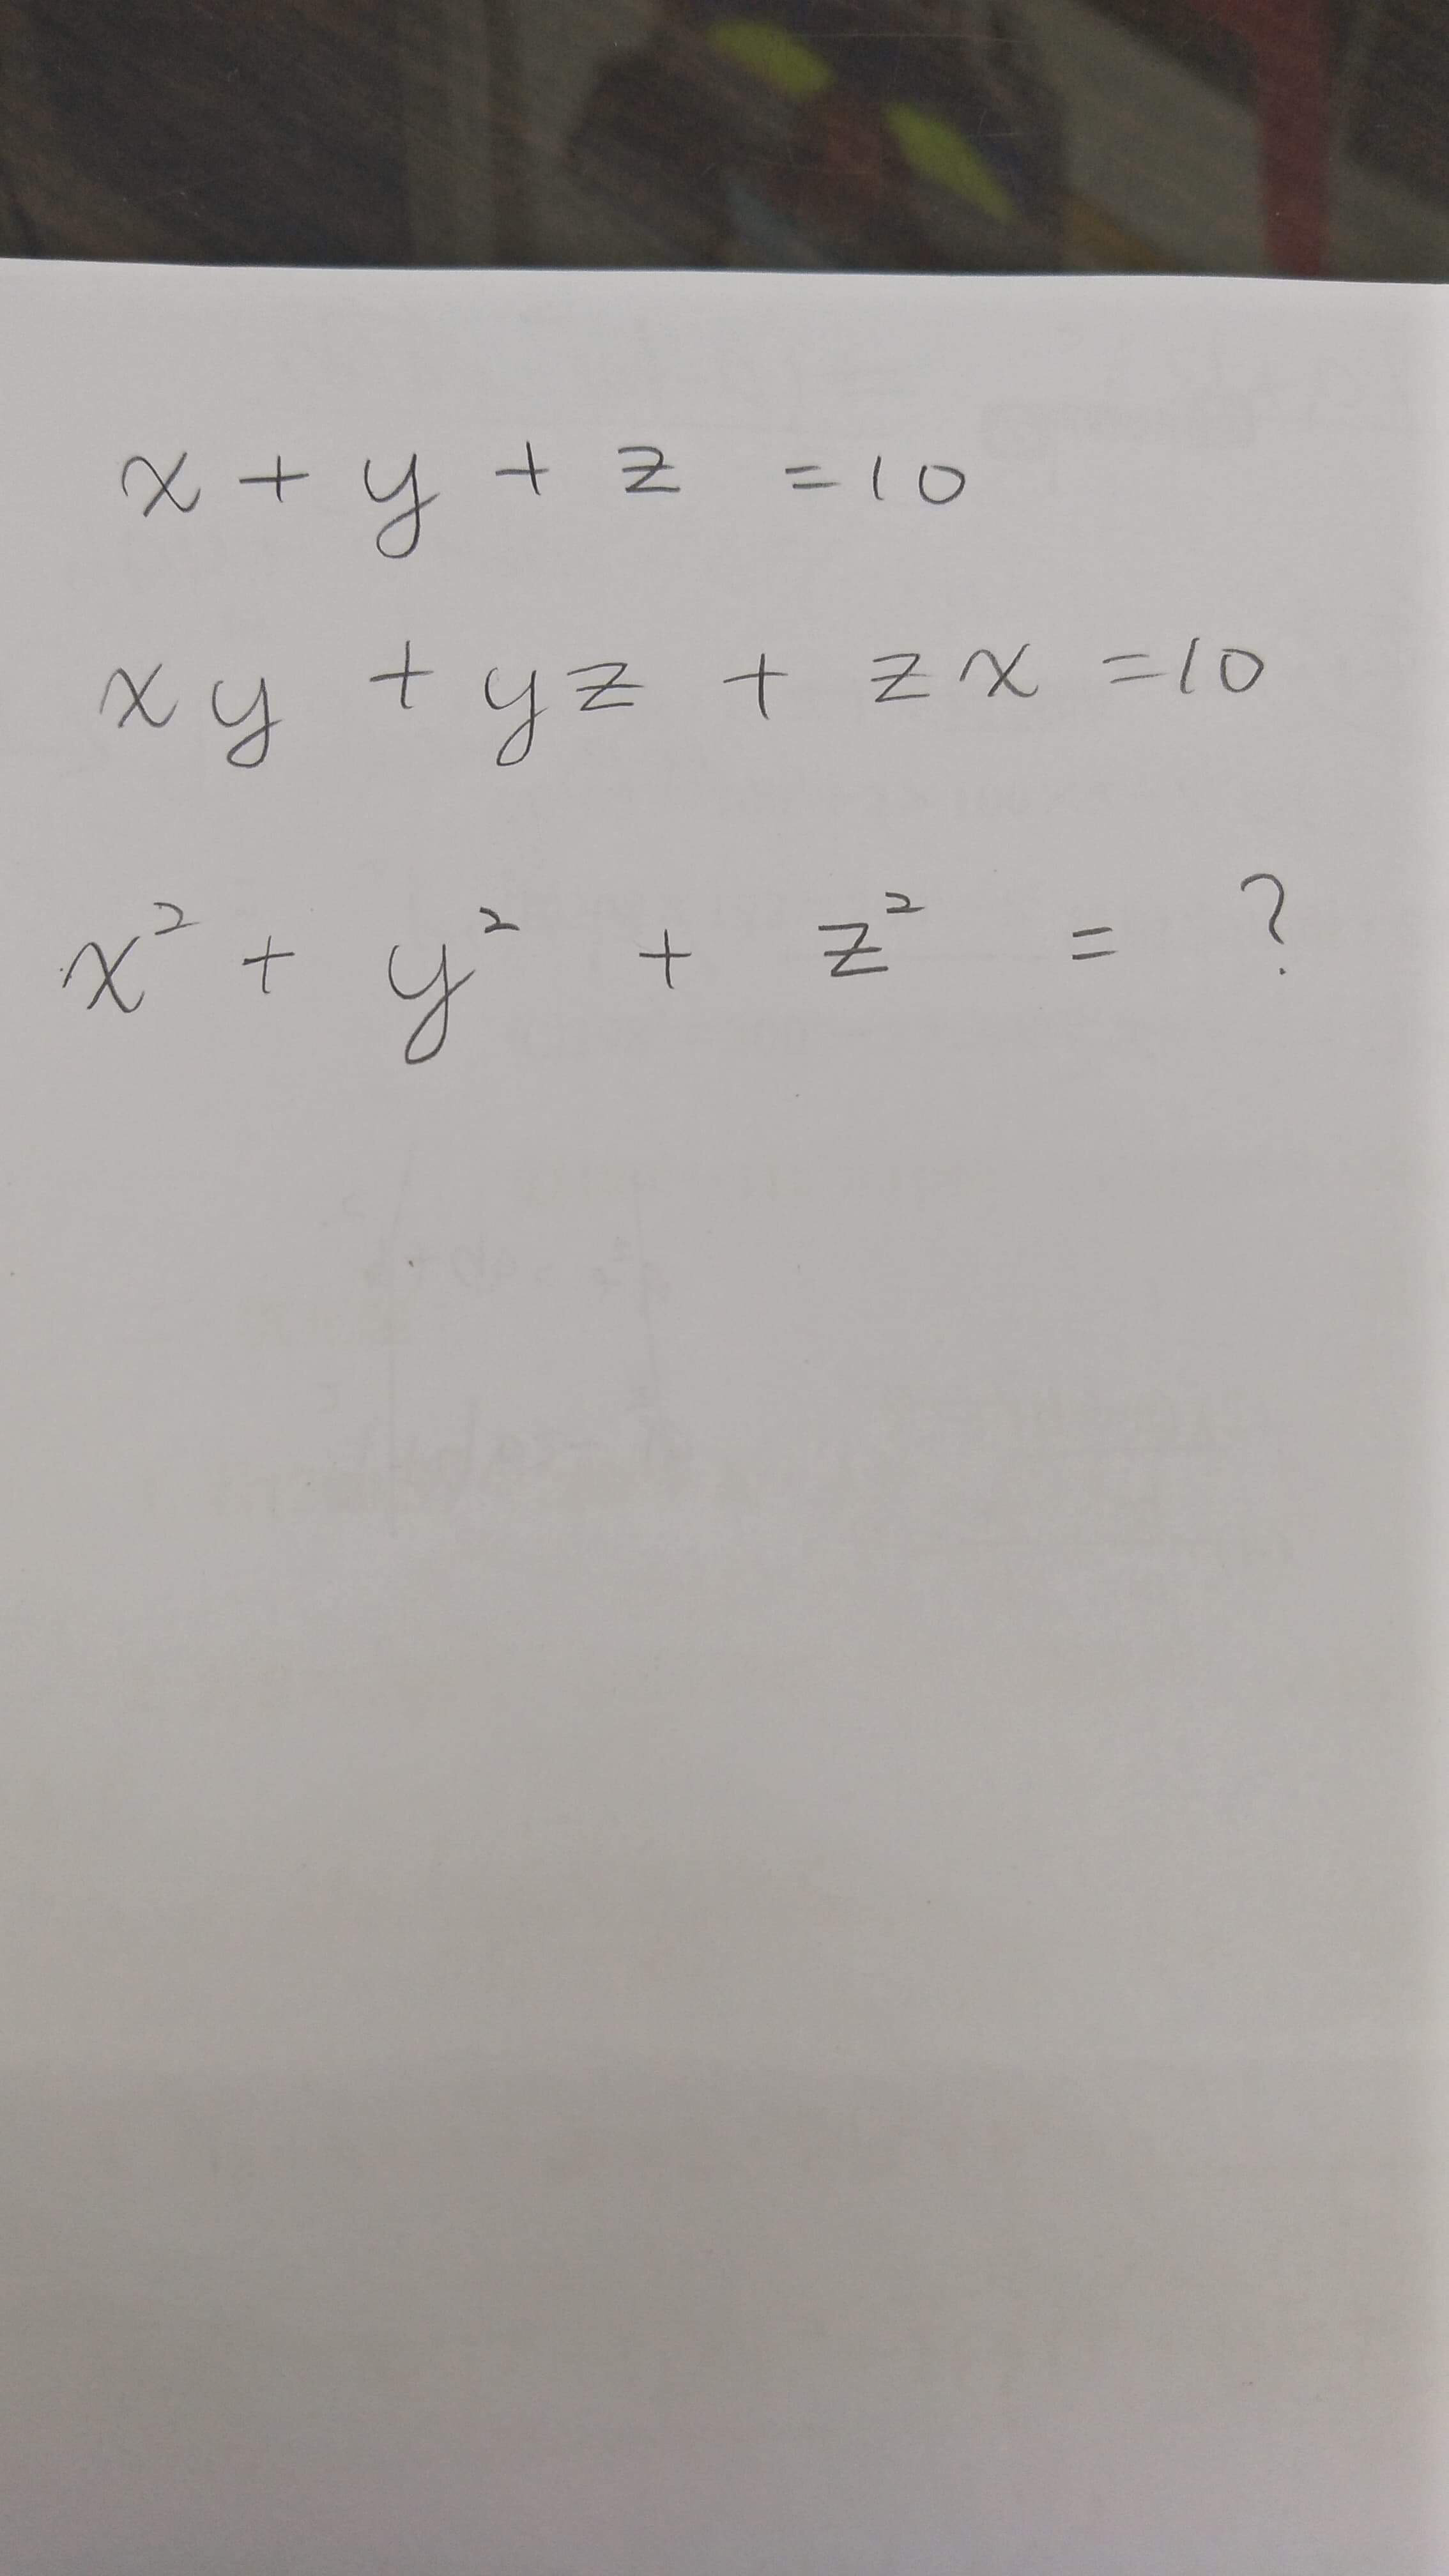 x + y + z = 10
xy + yz + zx = 10
x² + y² + z² = ?